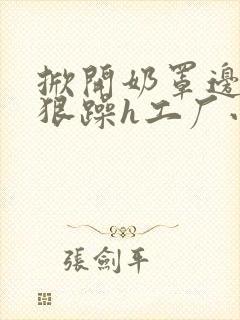 掀開奶罩邊
狠躁h工厂
張劍平